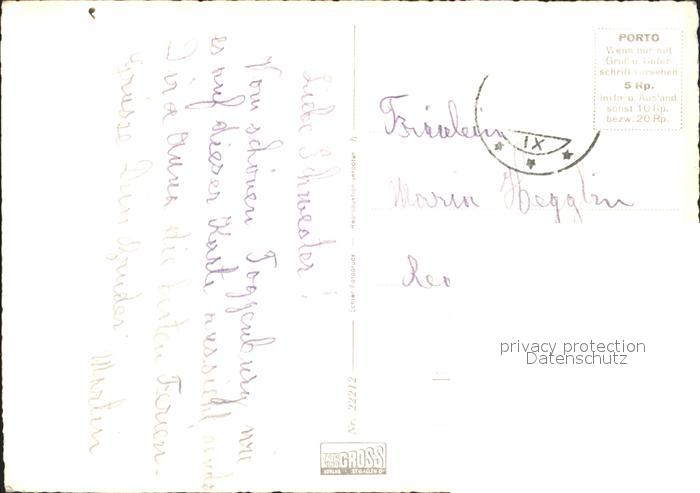 Liebe Schwester!
Vom schönen Toggenburg wie
es auf dieser Karte aussieht sende
Dir & Anna die besten Ferien-
grüsse Dein Bruder Martin
Fräulein
Maria Hegglin
PORTO
Wenn nur mit
Gruß u. Unter-
schrift versehen
5 Rp.
im In- u. Ausland
sonst 10 Rp.
bezw. 20 Rp.
IX
Nr. 22212
Echter Fotodruck — Reproduktion verboten
GROSS
VERLAG ST. GALLEN
privacy protection
Datenschutz